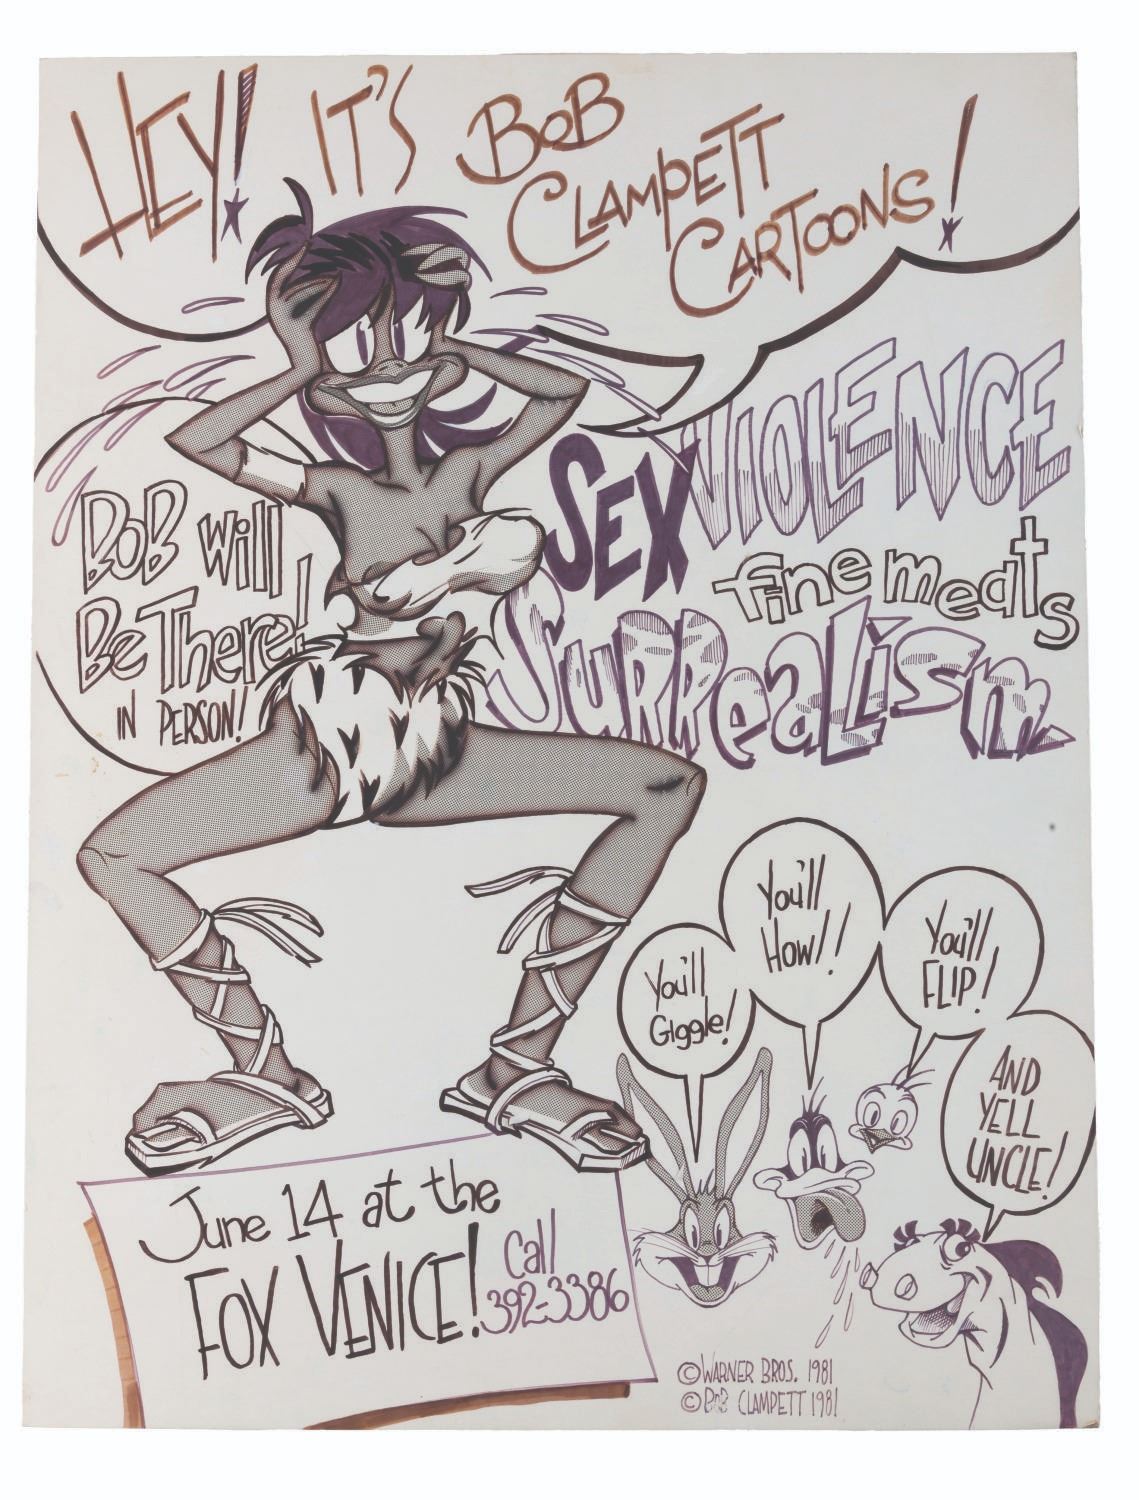 HEY! IT'S BOB
CLAMPETT
CARTOONS!
BOB Will
Be There!
IN PERSON!
SEX VIOLENCE
fine meats
SuRRealism
You'll
Giggle!
You'll
Howl!
You'll
FLIP!
AND
YELL
UNCLE!
June 14 at the
FOX VENICE!
Call
392-3386
©WARNER BROS. 1981
©BOB CLAMPETT 1981